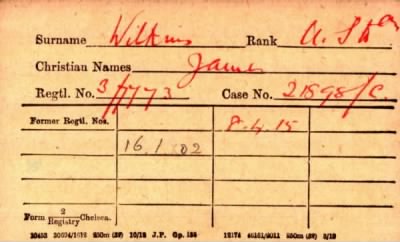 Surname Wilkins Rank
Christian Names James
Regtl. No. 3/7773 Case No. 21898/C.
Former Regtl. Nos.
8.4.15
16.1.02
Form 2/Registry Chelsea.
20453 20604/1612 250m (39) 10/18 J.P. Gp. 134 12174 46161/2011 250m (39) 3/19